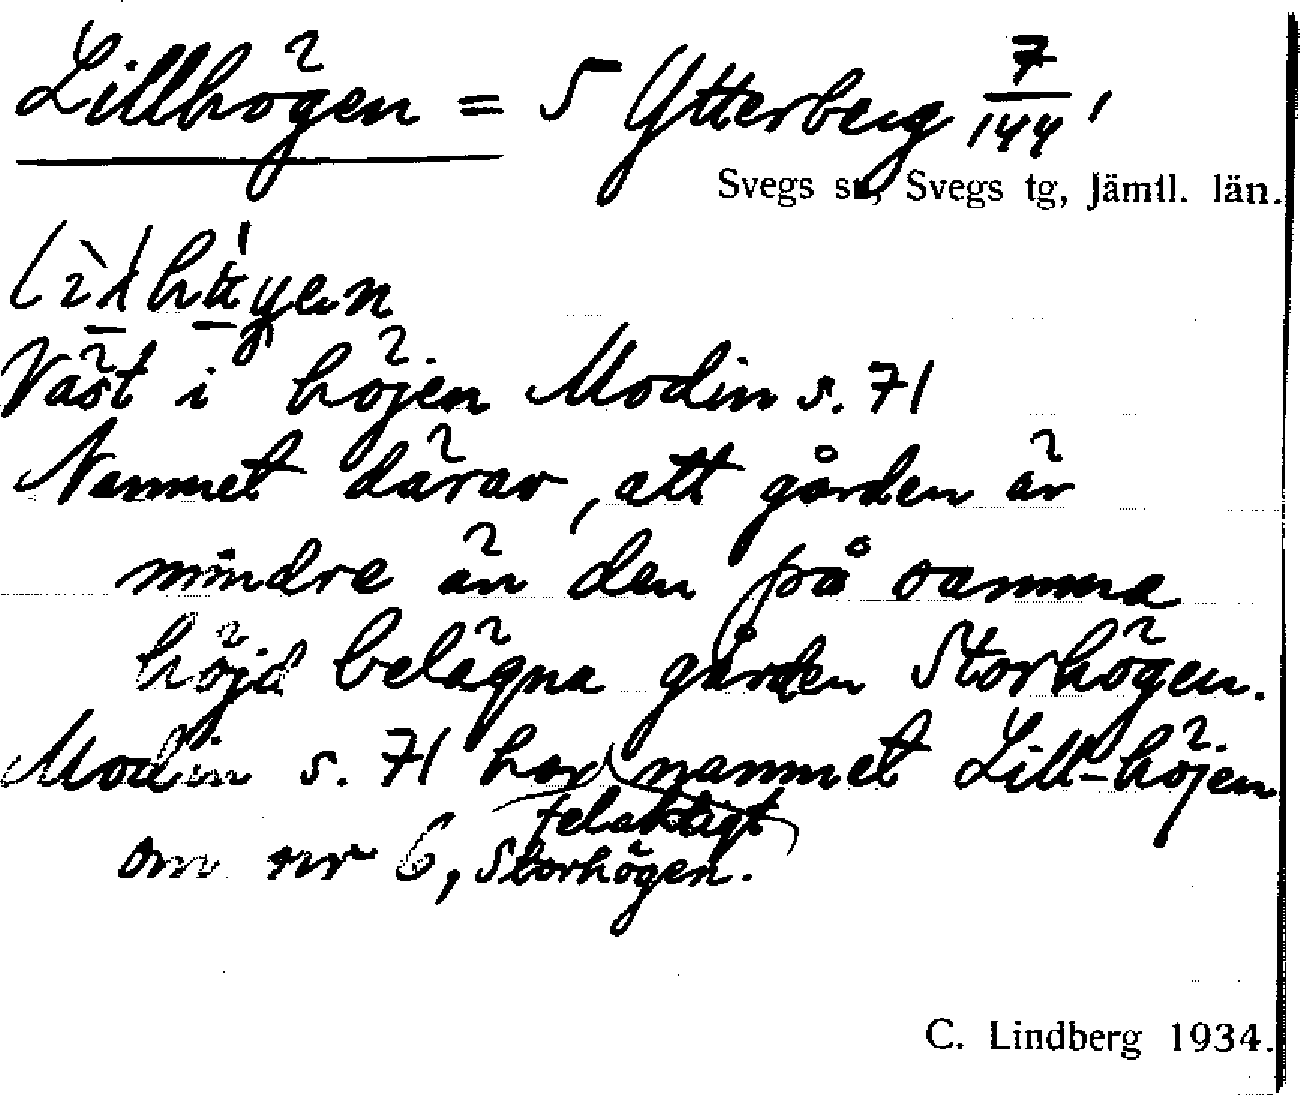 Lillhögen = 5 Ytterberg 7/144,
Svegs sn, Svegs tg, Jämtl. län.
Väst i höjen Modin s. 71
Namnet därav, att gården är
mindre än den på samma
höjd belägna gården Storhögen.
Modin s. 71 har felaktigt namnet Lill-höjen
om nr 6, Storhögen.
C. Lindberg 1934.